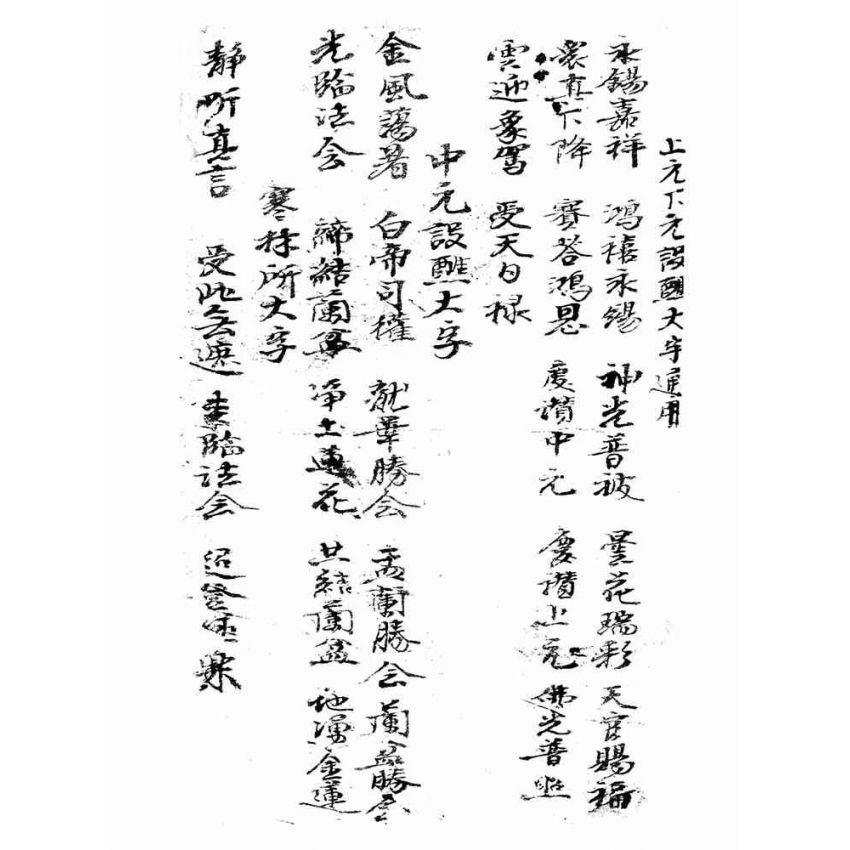 上元下元設醮大字通用
永錫嘉祥 鴻禧永錫 神光普被 曇花瑞彩 天官賜福
衆真下降 賽答鴻恩 慶讚中元 慶讚上元 佛光普照
雲迎象駕 受天百祿
中元設醮大字
金風蕩暑 白帝司權 龍華勝会 盂蘭勝会 蘭盆勝会
光臨法会 締結蘭盆 淨土蓮花 共結蘭盆 地湧金蓮
寒林所大字
静听真言 受此無遮 来臨法会 超登果